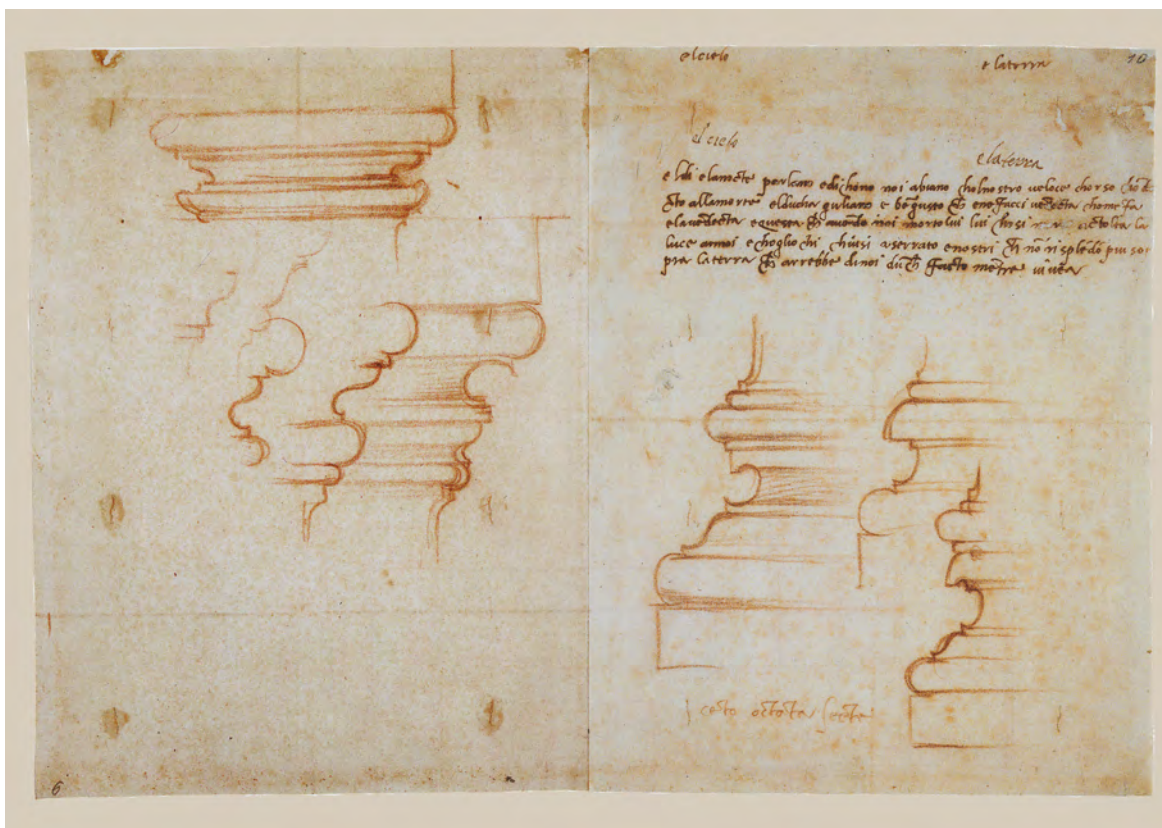 el cielo e la terra 10
el cielo e la terra
e ldi e lamocte parlano e dichono noi abiano chol nostro veloce chorso chō
dto alla morte el ducha guliano e bē gusto che e ne facci vēdecta chome fa
e la vendecta e questa che avendo noi morto lui lui chosi morto a tolta la
luce a noi e chogli ochi chiusi a serrato e nostri che nō risplēdō piu sor
pra la terra che arrebbe di noi dunche facto mentre vivea
cēto octōta secte
6